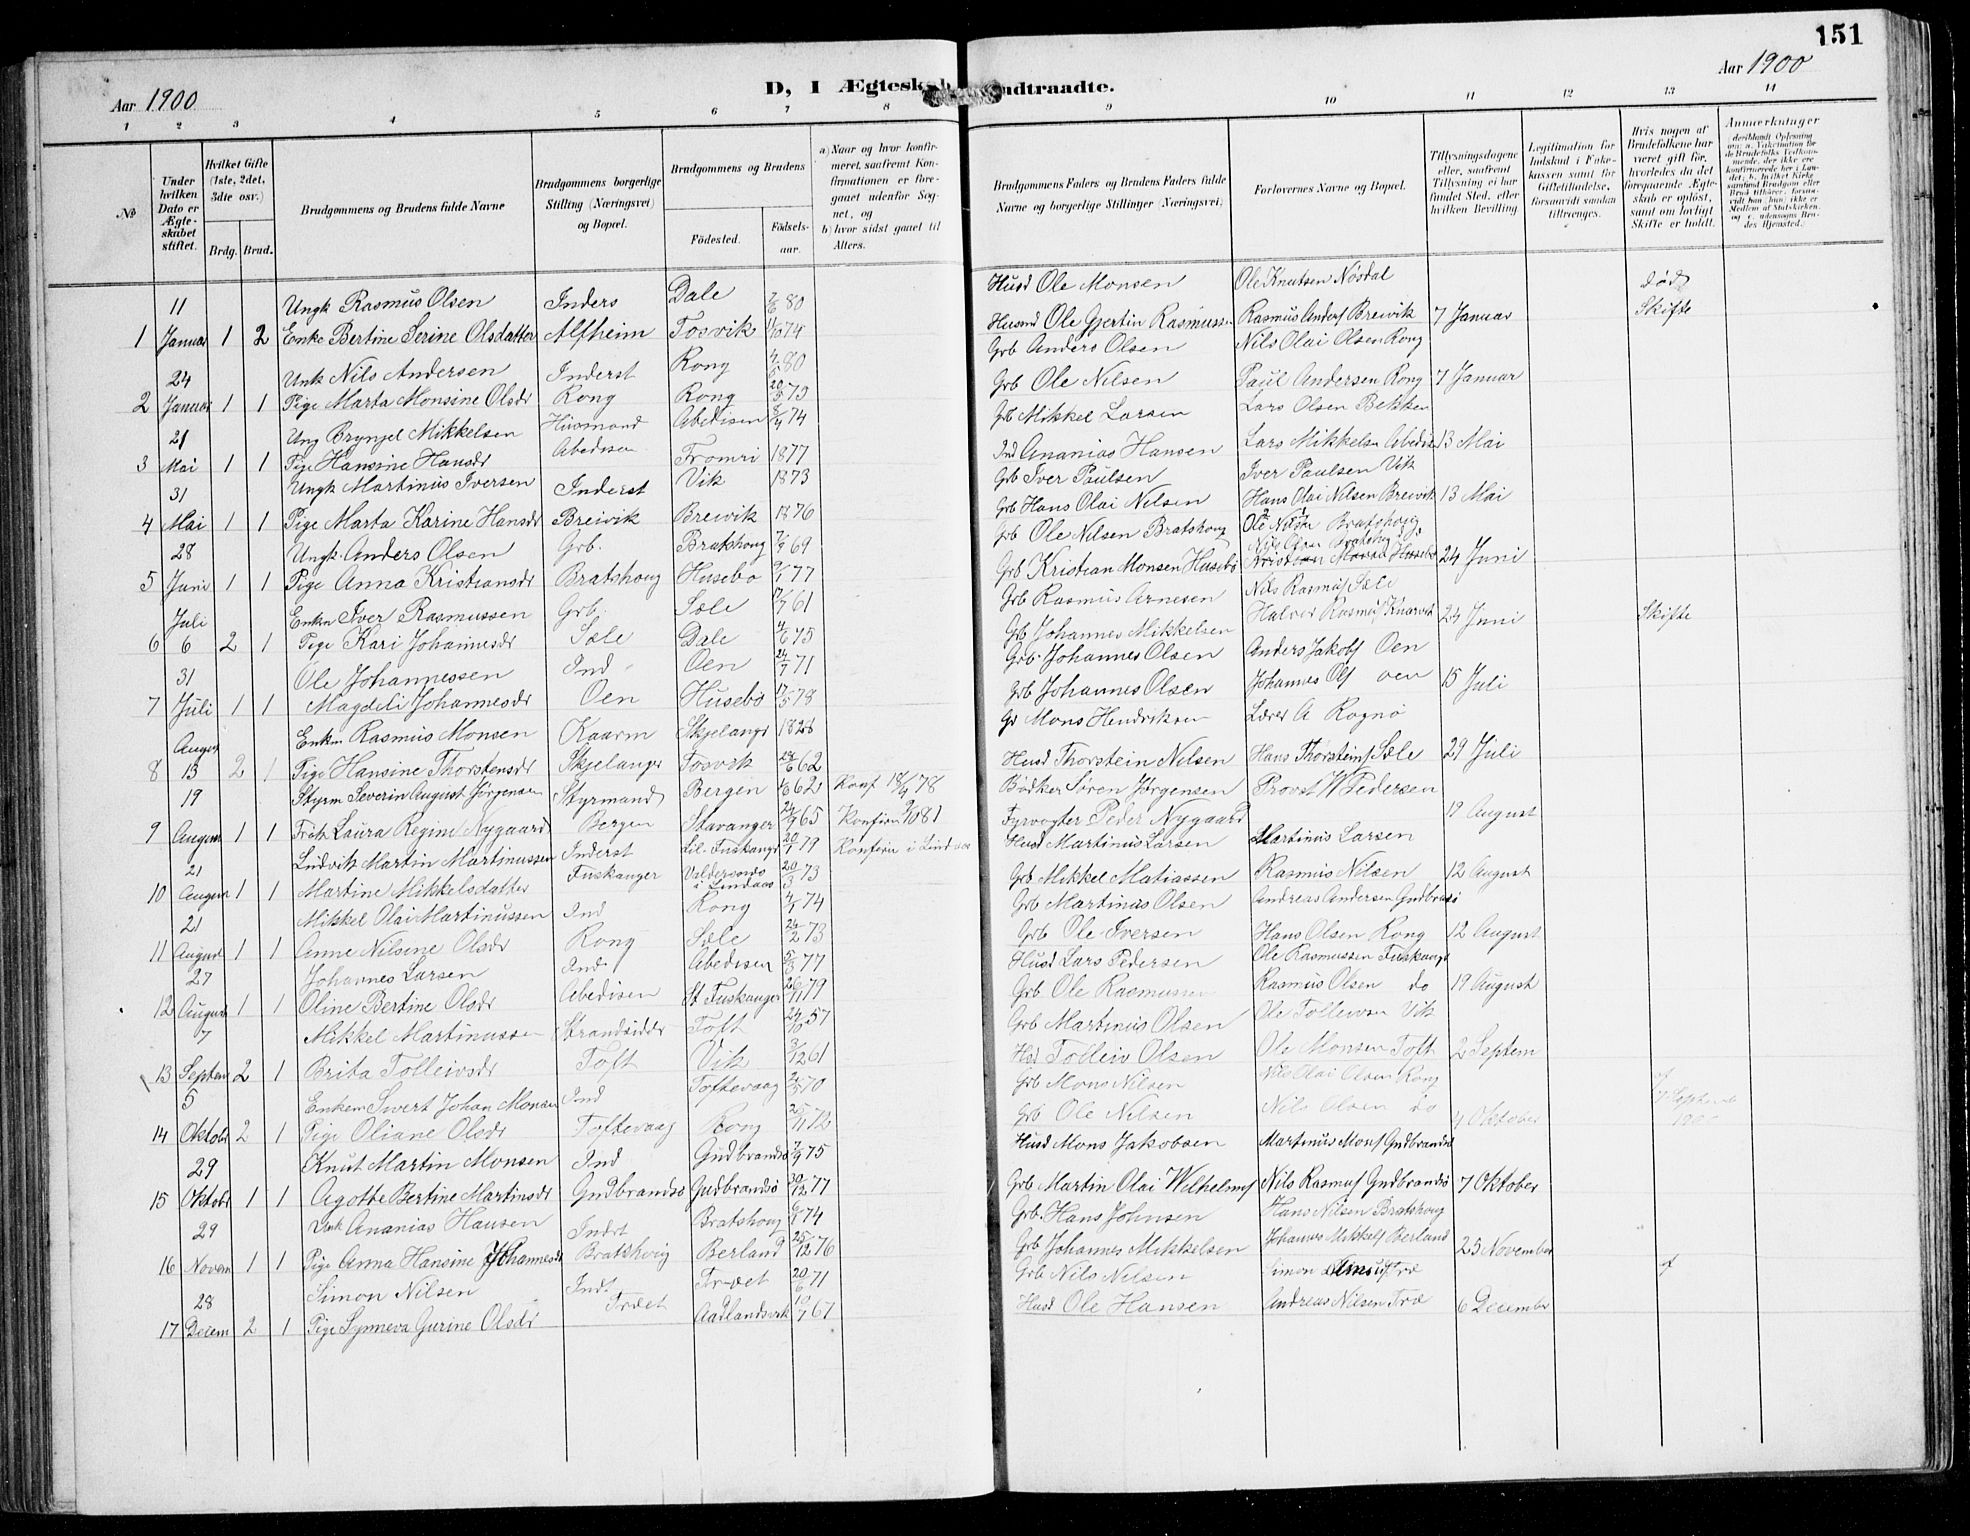 151
Aar 1900
D, I Ægteskab Indtraadte.
Aar 1900
1 2 3 4 5 6 7 8 9 10 11 12 13 14
No
Under hvilken Dato er Ægteskabet stiftet.
Hvilket Gifte (1ste, 2det, 3die osv.)
Brdg. Brud.
Brudgommens og Brudens fulde Navne
Brudgommens borgerlige Stilling (Næringsvei) og Bopæl.
Brudgommens og Brudens
Födested.
Födselsaar.
a) Naar og hvor konfirmeret, saafremt Konfirmationen er foregaaet udenfor Sognet, og
b) hvor sidst gaaet til Alters.
Brudgommens Faders og Brudens Faders fulde Navne og borgerlige Stillinger (Næringsvei)
Forlovernes Navne og Bopæl.
Tillysningsdagene eller, saafremt Tillysning ei har fundet Sted, efter hvilken Bevilling
Legitimation for Indskud i Enkekassen samt for Giftetilladelse, forsaavidt saadan tiltrænges.
Hvis nogen af Brudefolkene har været gift før, hvorledes da det foregaaende Ægteskab er opløst, samt om lovligt Skifte er holdt.
Anmerkninger
11 Ungk Rasmus Olsen Inders Dale 7/6 80 Husd Ole Monsen Ole Knutsen Nösdal död
1 Januar 1 2 Enke Bertine Serine Olsdatter Alfheim Fosvik 74 Husmd Ole Gjertin Rasmussen Rasmus Anders Breivik 7 Januar Skifte
24 Unk Nils Andersen Inderst Rong 80 Grb Anders Olsen Nils Olai Olsen Rong
2 Januar 1 1 Pige Marta Monsine Olsdr Rong Rong 20/5 79 Grb Ole Nilsen Paul Andersen Rong 7 Januar
21 Ung Brynjel Mikkelsen Husmand Abedisen 8/4 74 Grb Mikkel Larsen Lars Olsen Bekken
3 Mai 1 1 Pige Hansine Hansdr Abedisen Fromri 1877 Ind Ananias Hansen Lars Mikkelsen Abedise 13 Mai
31 Ungk Martinus Iversen Inderst Vik 1873 Grb Iver Paulsen Iver Paulsen Vik
4 Mai 1 1 Pige Marta Karine Hansdr Breivik Breivik 1876 Grb Hans Olai Nilsen Hans Olai Nilsen Breivik 13 Mai
28 Ungk. Anders Olsen Grb. Bratshoug 69 Grb Ole Nilsen Bratshoug Ole Nilsen Bratshovig
5 Juni 1 1 Pige Anna Kristiansdr Bratshoug Husebö 9/1 77 Grb Kristian Monsen Husebö Kristian Monsen Husebö 24 Juni
Juli Enkm Iver Rasmussen Grb. Sæle 17/7 61 Grb Rasmus Arnesen Nils Rasmus Sæle
6 6 2 1 Pige Kari Johannesdr Sæle Dale 4/6 75 Grb Johannes Mikkelsen Halvor Rasmus Knarvik 24 Juni Skifte
31 Ole Johannessen Ind Oen 24/7 71 Grb. Johannes Olsen Anders Jakobs Oen
7 Juli 1 1 Magdeli Johannesdr Oen Husebö 17/5 78 Grb Johannes Olsen Johannes Ols oen 15 Juli
August Enkm Rasmus Monsen Kaarm Skjelangr Gr Mons Hendriksen Lærer A Rognö
8 13 2 1 Pige Hansine Thorstensdr Skjelanger Fosvik 62 Husd Thorstein Nilsen Hans Thorsteins Sæle 29 Juli
19 Styrm Severin August Jörgensen Styrmand Bergen 62 Konf 18/4 78 Bödker Sören Jörgensen Provst W Pedersen
9 August 1 1 Frök Laura Regine Nygaard Bergen Stavanger 24/9 65 Konfirm 2/10 81 Fyrvogter Peder Nygaard 19 August
21 Ludvik Martin Martinussen Inderst Lil. Fuskangr 20/1 79 Konferm i Lindaas Husd Martinus Larsen Martinus Larsen
10 August 1 1 Martine Mikkelsdatter Fuskanger Valdersnes i Lindaas 20/3 73 Grb Mikkel Matiassen Rasmus Nilsen 12 August
21 Mikkel Olai Martinussen Ind Rong 4/1 74 Grb Martinus Olsen Andreas Andersen Gudbransö
11 August 1 1 Anne Nilsine Olsdr Rong Sæle 26/2 73 Grb Ole Iversen Hans Olsen Rong 12 August
27 Johannes Larsen Ind. Abedisen 5/3 77 Husd Lars Pedersen Ole Rasmussen Fuskangr
12 August 1 1 Oline Bertine Olsdr Abedisen St Fuskanger 26/11 79 Grb Ole Rasmussen Rasmus Olsen do 19 August
7 Mikkel Martinussen Strandsidder Toft 24/10 57 Grb Martinus Olsen Ole Tolleivsen Vik
13 Septem 2 1 Brita Tolleivsdr Toft Vik 3/12 61 Hsd Tolleiv Olsen Ole Monsen Toft 2 Septem
5 Enkem Sivert Johan Monsen Ind Toftevaag 70 Grb Mons Nilsen Nils Olai Olsen Rong
14 Oktobr 2 1 Pige Oliane Olsdr Toftevaag Rong 25/11 72 Grb Ole Nilsen Nils Olsen do 4 Oktober
29 Knut Martin Monsen Ind Gudbrandsö 7/9 75 Husd Mons Jakobsen Martinus Mons Gudbrandsö
15 Oktobr 1 1 Agotte Bertine Martinsdr Gudbrandsö Gudbrandsö 30/12 77 Grb Martin Olai Wilhelms Nils Rasmus Gudbrandsö 7 Oktober
29 Unk Ananias Hansen Inderst Bratshoug 6/1 74 Grb. Hans Johnsen Hans Nilsen Bratshovg
16 Novem 1 1 Pige Anna Hansine Johannesdr Bratshovig Berland 25/12 76 Grb Johannes Mikkelsen Johannes Mikkels Berland 25 November
28 Simon Nilsen Ind Trædet 20/6 71 Grb Nils Nilsen Simon Træ
17 Decem 2 1 Pige Synneva Gurine Olsdr Trædet Aadlandsvik 67 Husd Ole Hansen Andreas Nilsen Træ 6 December